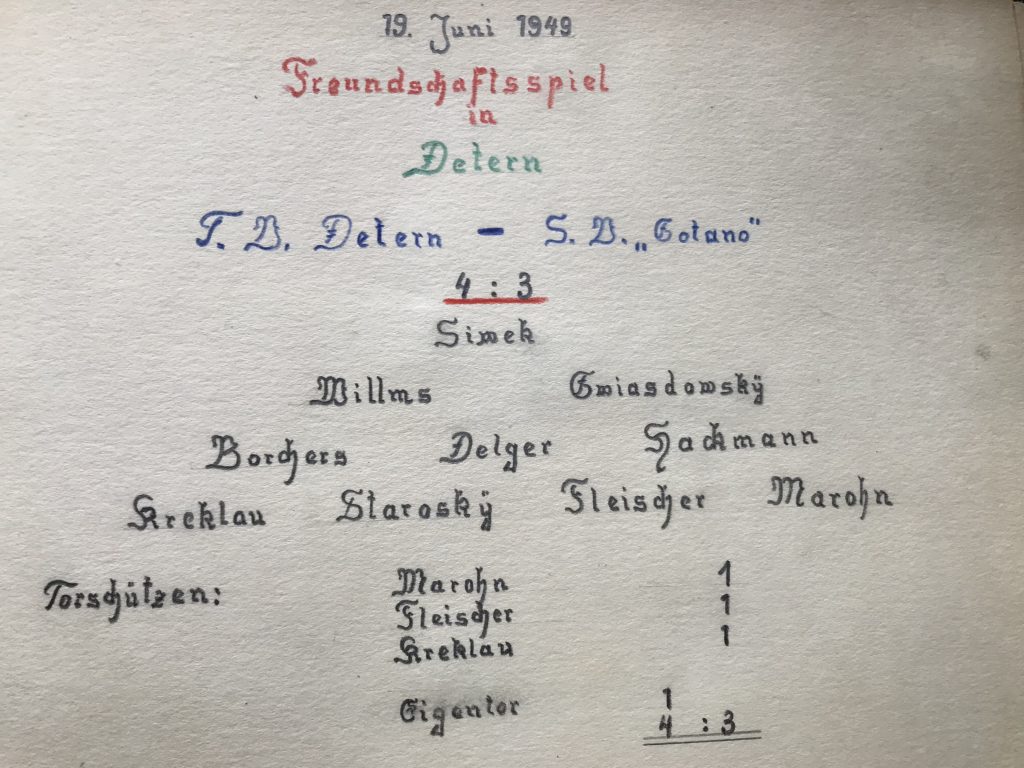 19. Juni 1949
Freundschaftsspiel
in
Detern
T. B. Detern – S. B. „Gotano"
4 : 3
Simek
Willms Gwiasdowskÿ
Borchers Delger Hackmann
Kreklau Staroskÿ Fleischer Marohn
Torschützen: Marohn 1
Fleischer 1
Kreklau 1
Eigentor 1
4 : 3